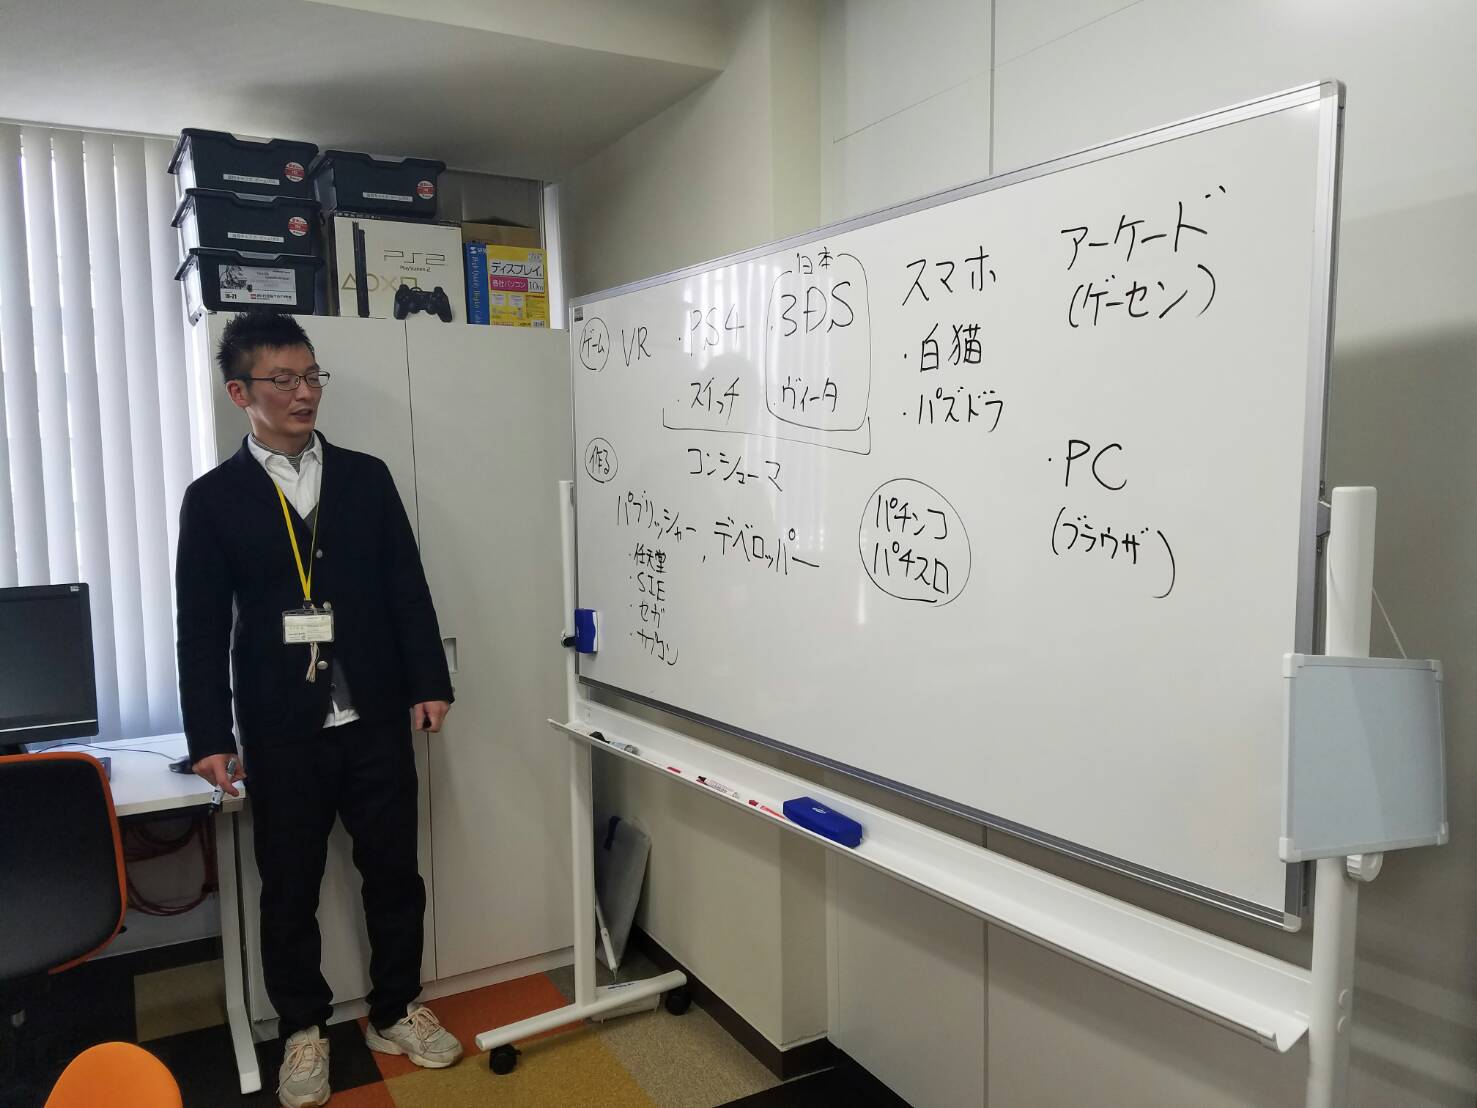 ゲーム
VR
・PS4
日本
・3DS
・スイッチ
・ヴィータ
コンシューマ
スマホ
・白猫
・パズドラ
アーケード
(ゲーセン)
・PC
(ブラウザ)
作る
パブリッシャー, デベロッパー
・任天堂
・SIE
・セガ
・カプコン
パチンコ
パチスロ
PS2
PlayStation 2
ディスプレイ
各社パソコン
10m